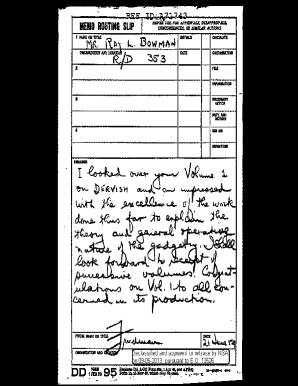 REF ID:A71743
MEMO ROUTING SLIP
NEVER USE FOR APPROVALS, DISAPPROVALS, CONCURRENCES, OR SIMILAR ACTIONS
1 NAME OR TITLE
INITIALS
CIRCULATE
MR. RAY L. BOWMAN
ORGANIZATION AND LOCATION
DATE
COORDINATION
R/D 353
2
FILE
INFORMATION
3
NECESSARY ACTION
NOTE AND RETURN
4
SEE ME
SIGNATURE
REMARKS
I looked over your Volume 1
on DERVISH and am impressed
with the excellence of the work
done thus far to explain the
theory and general operative
nature of the gadgetry. I shall
look forward to receipt of
successive volumes. Congrat-
ulations on Vol. 1 to all con-
cerned in its production.
Friedman
FROM NAME OR TITLE
DATE
21 June
ORGANIZATION AND LOCATION
Declassified and approved for release by NSA
on 09-05-2013 pursuant to E.O. 13526
DD FORM 95